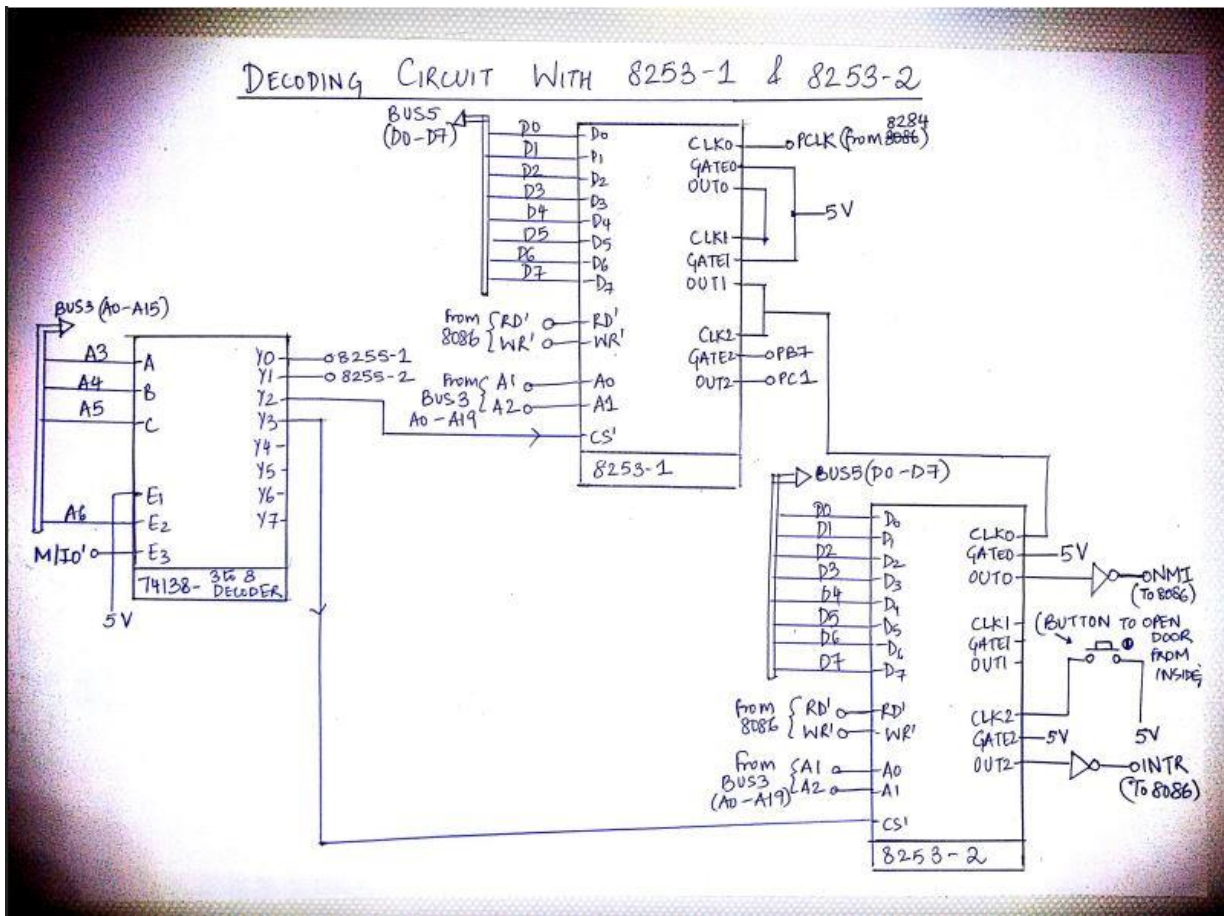 DECODING CIRCUIT WITH 8253-1 & 8253-2
BUS5
(D0-D7)
D0
D1
D2
D3
D4
D5
D6
D7
D0
D1
D2
D3
D4
D5
D6
D7
From 8086 { RD'
WR'
RD'
WR'
From BUS3 A0-A19 { A1
A2
A0
A1
CS'
8253-1
CLK0
GATE0
OUT0
CLK1
GATE1
OUT1
CLK2
GATE2
OUT2
PCLK (from 8086) 8284
5V
PB7
PC1
BUS3 (A0-A15)
A3
A4
A5
A6
M/IO'
5V
A
B
C
E1
E2
E3
Y0
Y1
Y2
Y3
Y4
Y5
Y6
Y7
8255-1
8255-2
74138- 3 to 8 DECODER
BUS5 (D0-D7)
D0
D1
D2
D3
D4
D5
D6
D7
D0
D1
D2
D3
D4
D5
D6
D7
from 8086 { RD'
WR'
RD'
WR'
from BUS3 (A0-A19) { A1
A2
A0
A1
CS'
8253-2
CLK0
GATE0
OUT0
CLK1
GATE1
OUT1
CLK2
GATE2
OUT2
5V
NMI
(To 8086)
(BUTTON TO OPEN
DOOR
FROM
INSIDE)
5V
5V
INTR
(To 8086)